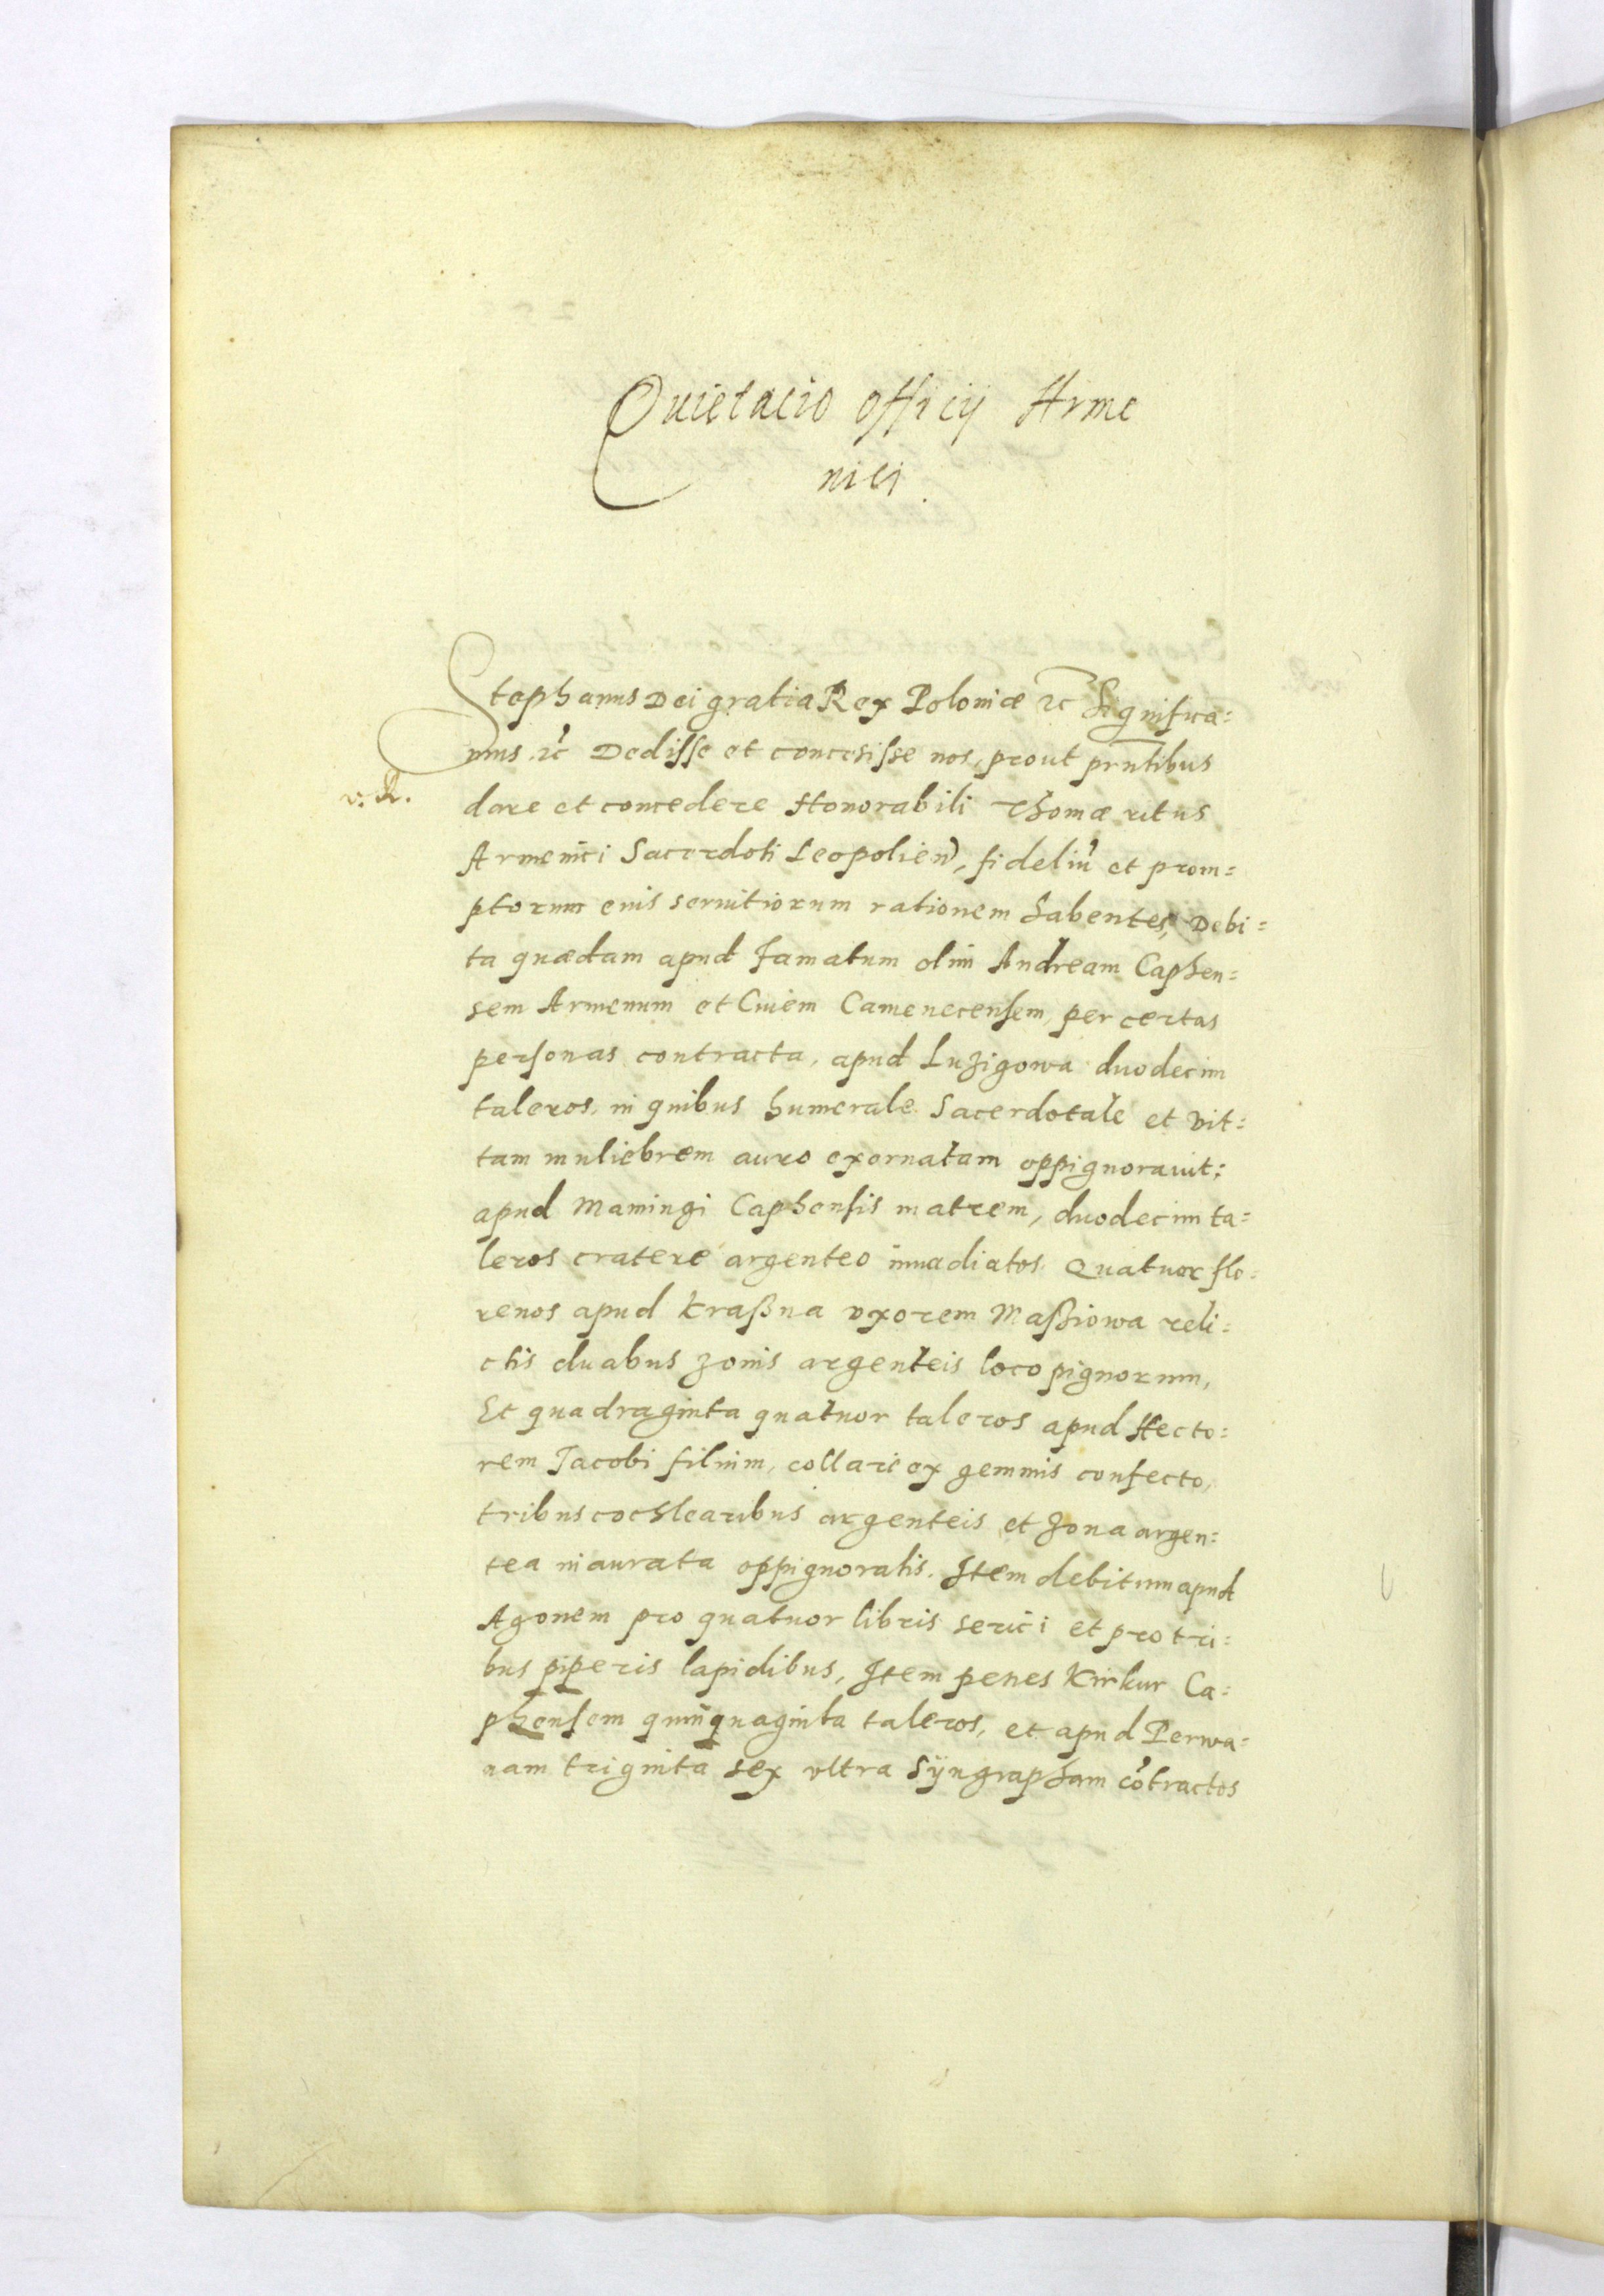 Quietacio officij Arme
nici.
Stephanus Dei gratia Rex Poloniæ etc Significa=
mus etc Dedisse et concesisse nos, prout prntibus
v. R.
dare et concedere Honorabili Thomæ ritus
Armenici Sacerdoti Leopolien, fideliu et prom=
ptorum eius seruitiorum rationem habentes, Debi=
ta quædam apud famatum olim Andream Caphen=
sem Armenum et Ciuem Camenecensem, per certas
personas contracta, apud Luzigowa duodecim
taleros, in quibus humerale Sacerdotale et vit=
tam muliebrem auro exornatam oppignorauit:
apud Mamingi Caphensis matrem, duodecim ta=
leros cratere argenteo inuadiatos. Quatuor flo=
renos apud Kraßna vxorem Maßiowa reli=
ctis duabus zonis argenteis loco pignorum,
Et quadraginta quatuor taleros apud Hecto=
rem Jacobi filium, collari ex gemmis confecto,
tribus cochlearibus argenteis et zona argen=
tea inaurata oppignoratis. Item debitum apud
Agonem pro quatuor libris serici et pro tri=
bus piperis lapidibus, Item penes Kirkur Ca=
phensem quinquaginta taleros, et apud Perwa=
nam triginta sex vltra Syngrapham cotractos